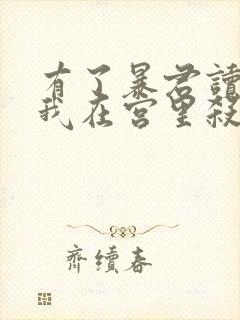 有了暴君讀
我在宮里殺
齊續春